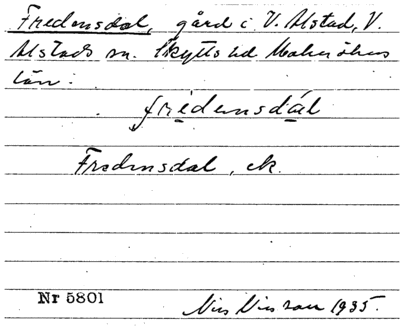 Fredensdal, gård i V. Alstad, V.
Alstads sn. Skytts hd Malmöhus
län.
fridensdál
Fredensdal, ek.
Nr 5801
Nils Nilsson 1935.